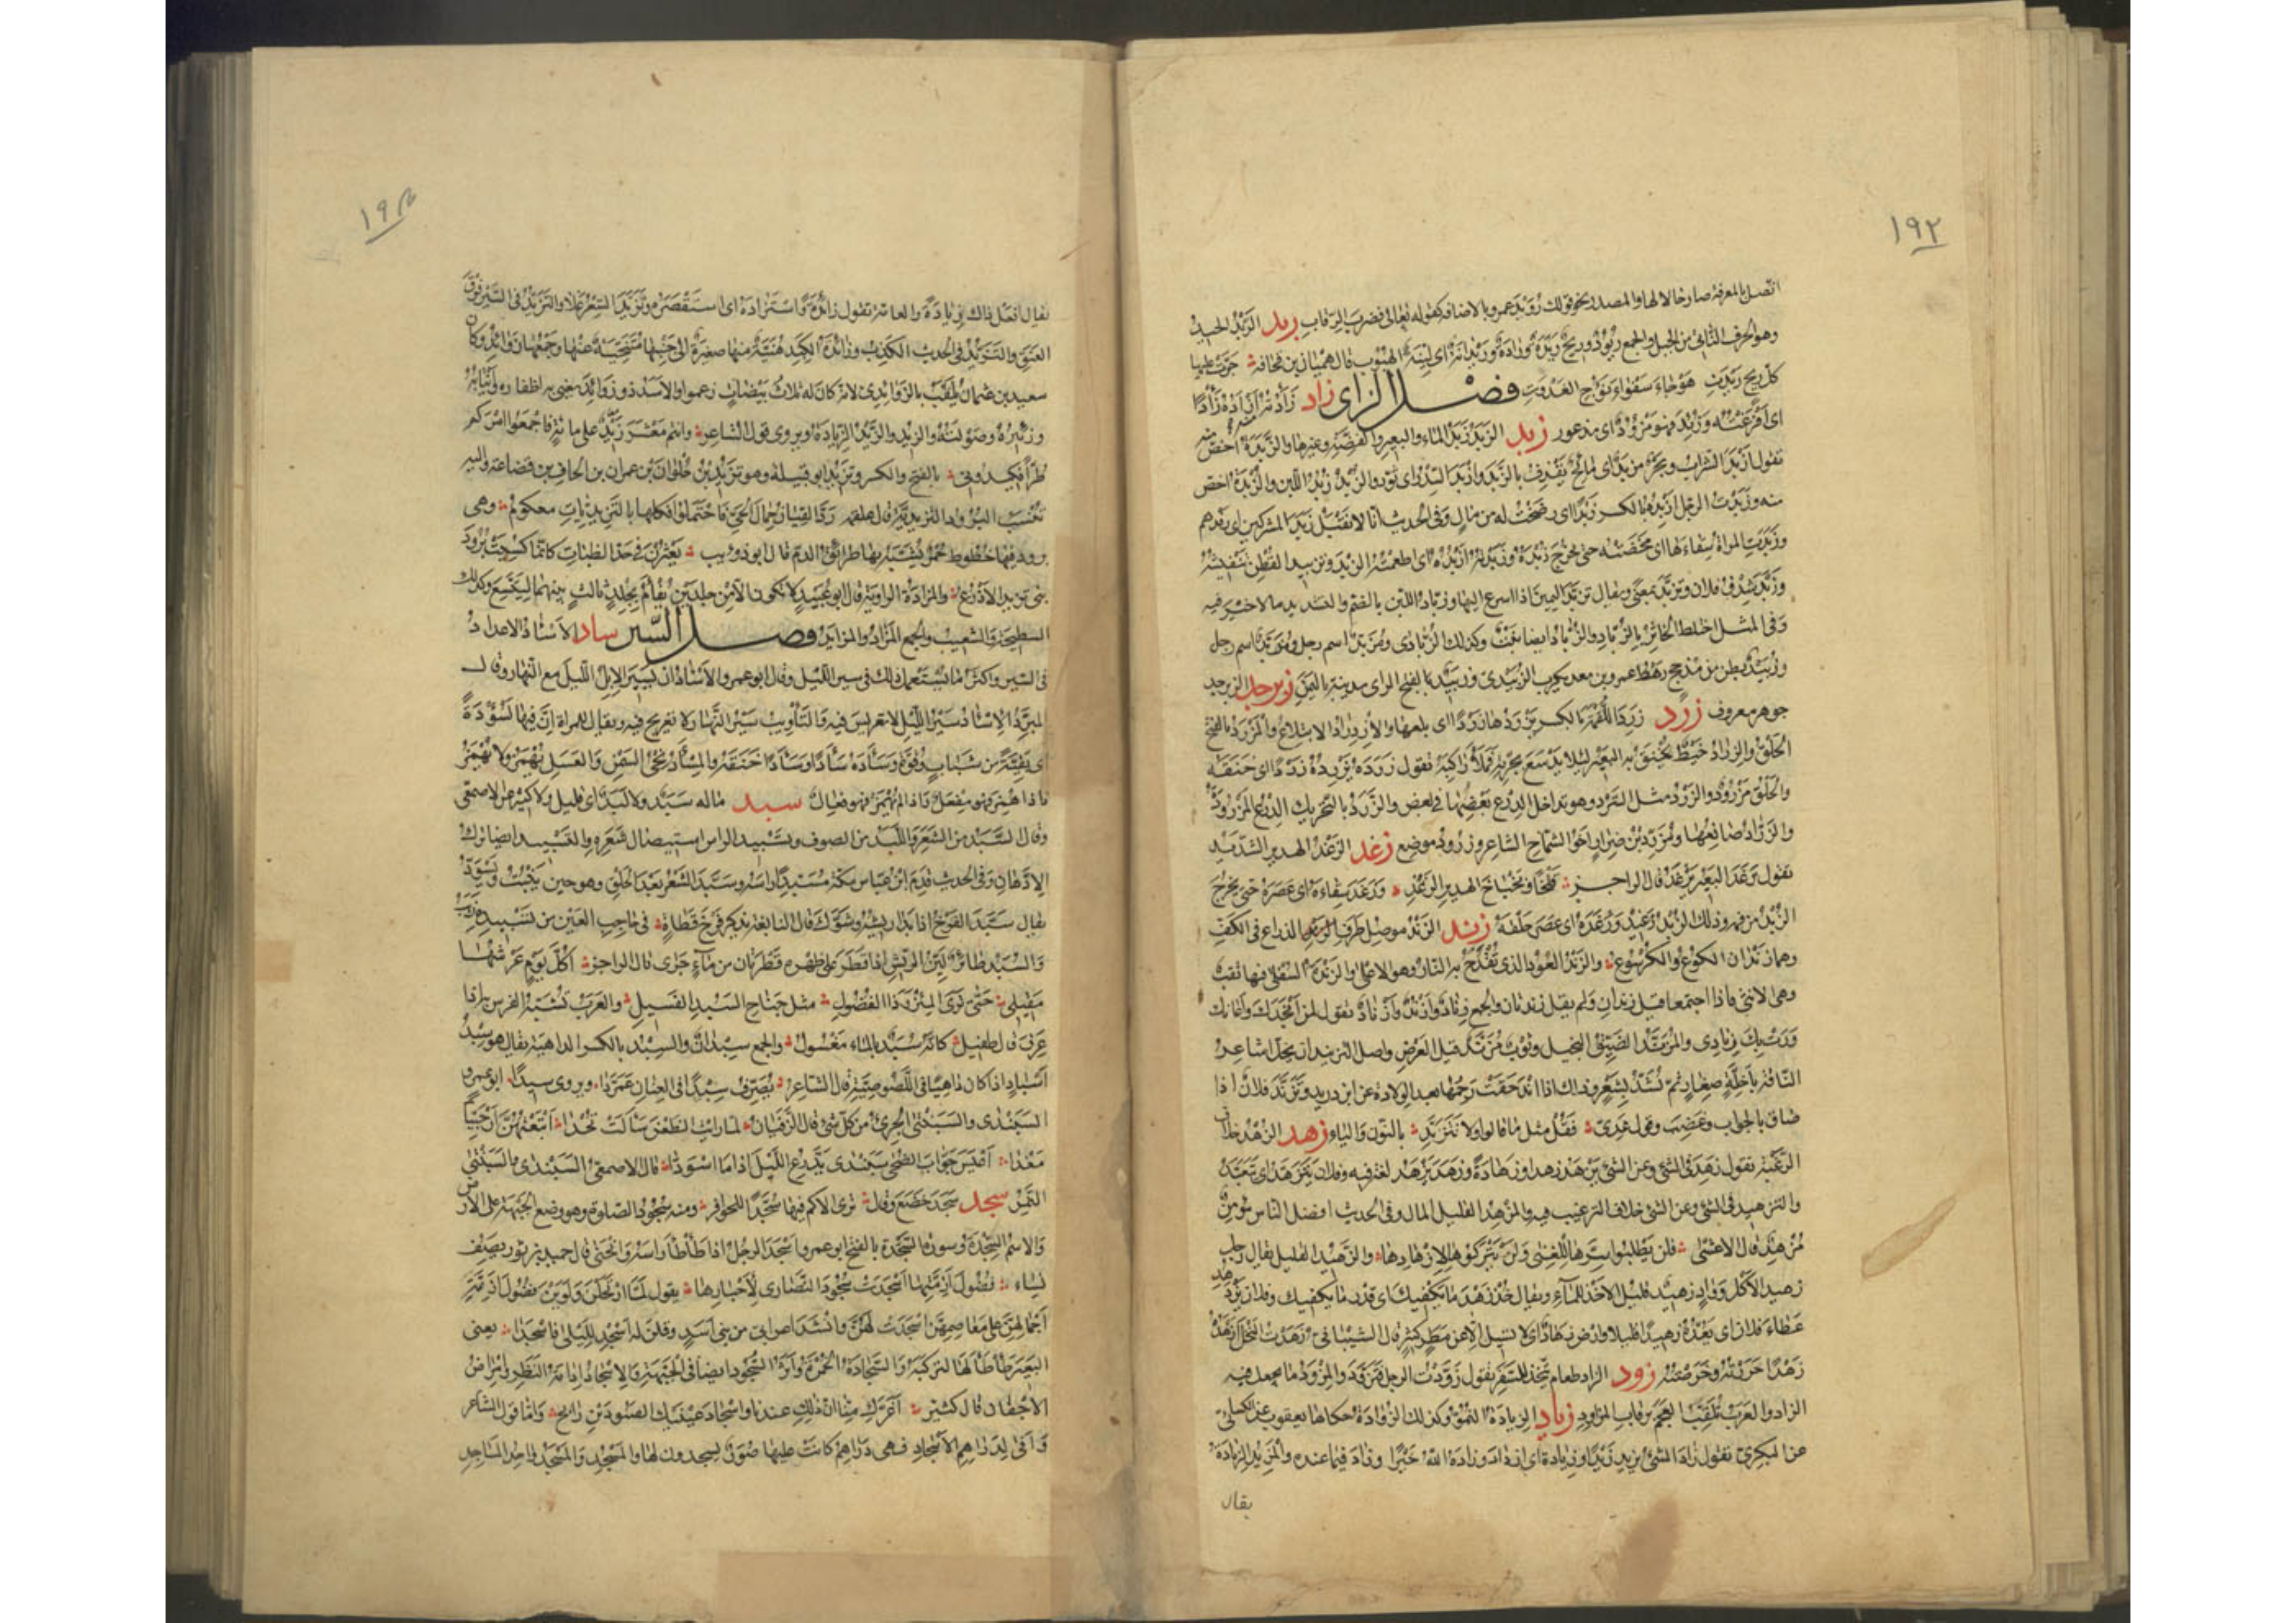 ١٩٢
اتصل بالمعرفة صار حالا لها والمصدر نحو قولك رُوَيْدَ عمرو بالاضافة كقوله تعالى فضرب الرقاب ريد الرَّيْدُ الحَيْدُ
وهو الحرف الناتئ من الجبل والجمع رُيُودٌ وريح رَيْدَةٌ ورادةٌ ورَيْدانَةٌ اى لينة الهبوب قال هميان بن قحافة جرّت عليها
كل ريح رَيْدَتِ هوجاء سفواء نؤوج الغدوت فصل الزاى زاد زَأَدْتُهُ أَزْأَدُهُ زَأْدًا
اى افزعته وزُئِدَ فهو مزؤد اى مذعور زبد الزَّبَدُ زَبَدُ الماء والبعير والفضّة وغيرها والزَّبَدَةُ اخصّ منه
تقول ازبد الشراب وبحر مزبد اى مائج يقذف بالزَّبَد وازبد السدر اى نوّر والزُّبْدُ زُبْدُ اللبن والزُّبْدَةُ اخصّ
منه وزَبَدْتُ الرجل ازبده بالكسر زَبْدًا اى رضخت له من مال وفى الحديث انا لا نقبل زَبْدَ المشركين اى رفدهم
وزَبَدَتِ المراة سقاءها اى مخضته حتى يخرج زبده وزَبَدْتُهُ ازبُدُه اى اطعمته الزبد وتزبيد القطن تنفيشه
وزَبَّدَ شدق فلان وتزبّد بمعنى ويقال تزبّد اليمين اذا اسرع اليها وزُبّاد اللبن بالضم والتشديد ما لا خير فيه
وفى المثل اختلط الخاثر بالزُّبّاد والزُّبّاد ايضا نبت وكذلك الزُّبّادى ومُزَبِّد اسم رجل
وزُبَيْد بطن من مذحج رهط عمرو بن معد يكرب الزُّبيدى وزَبيد بالفتح الزاى مدينة باليمن زبرجد الزبرجد
جوهر معروف زرد زَرِدَ اللقمة بالكسر يزردها زَرَدًا اى بلعها والازدراد الابتلاع والمَزْرَدُ بالفتح
الحلق والزِّراد خيط يخنق به البعير لئلا يدسع بجرّته فيملأ راكبه تقول زرده يزرده زَرْدًا اى خنقه
والحلق مزرود والزَّرْد مثل السرد وهو تداخل الدرع بعضها فى بعض والزَّرَدُ بالتحريك الدرع المزرودة
والزَّرّاد صانعها ومُزَرِّد بن ضرار اخو الشماخ الشاعر وزرود موضع زغد الزَّغْدُ الهدير الشديد
تقول زغد البعير يزغد قال الراجز قلخا وبخباخ الهدير الزغد وزغد سقاءه اى عصره حتى يخرج
الزبد من فمه وذلك الزبد زغيد وزغده اى عصر حلقه زند الزَّنْدُ موصل طرف الذراع فى الكف
وهما زندان الكوع والكرسوع والزَّنْدُ العود الذى تقدح به النار وهو الاعلى والزَّنْدَةُ السفلى فيها ثقب
وهى الانثى فاذا اجتمعا قيل زندان ولم يقل زندتان والجمع زِناد وأزْنُد وأزْناد تقول لمن انجدك واعانك
ورت بك زنادى والمُزَنَّدُ الضيق البخيل وثوب مزنّد قليل العرض واصل التزنيد ان يخلّ اشاعر
الناقة باخلّة صغار ثم تشدّ بشعر وذلك اذا اندحقت رحمها بعد الولادة عن ابن دريد وتزنّد فلان اذا
ضاق بالجواب وغضب وقول عدىّ فقل مثل ما قالوا ولا تتزنّد بالنون والياء زهد الزهد خلاف
الرغبة تقول زهد فى الشئ وعن الشئ يزهد زهدا وزهادة وزهد يزهد لغة فيه وفلان يتزهّد اى يتعبّد
والتزهيد فى الشئ وعن الشئ خلاف الترغيب فيه والمُزْهِد القليل المال وفى الحديث افضل الناس مؤمن
مُزْهِد قال الاعشى فلن يطلبوا سرّها للغنى ولن يتركوها لازهادها والزهيد القليل يقال رجل
زهيد الاكل ووادٍ زهيد قليل الاخذ للماء ويقال خذ زهد ما يكفيك اى قدر ما يكفيك وفلان يزدهد
عطاء فلان اى يعدّه زهيدا قليلا وارض زهاد اى لا تسيل الا عن مطر كثير قال الشيبانى زهدت النخل زهد
زهدا حزرته وخرصته زود الزاد طعام يتّخذ للسفر تقول زوّدت الرجل فتزوّد والمِزْوَد ما يجعل فيه
الزاد والعرب تلقّب العجم برقاب المزاود زياد الزيادة النمو وكذلك الزوادة حكاها يعقوب عن الكسائى
عن البكرىّ تقول زاد الشئ يزيد زيدا وزيادة اى ازداد وزاده الله خيرا وزاد فيما عنده والمزيد الزيادة
يقال
١٩٣
يقال افعل ذلك زيادة والعامة تقول زائدة واستزاده اى استقصره وتزيّد السعر غلا والتزيّد فى السير فوق
العنق والتزيّد فى الحديث الكذب وزائدة الكبد هنيّة منها صغيرة الى جنبها متنحّية عنها وجمعها زوائد وكان
سعيد بن عثمان يلقّب بالزوائدى لانه كان له ثلاث بيضات زعموا والاسد ذو زوائد يعنى به اظفاره وانيابه
وزئيره وصولته والزِّيد والزَّيد الزيادة ويروى قول الشاعر وانتم معشر زيد على مائة فاجمعوا امركم
طرّا فكيدونى بالفتح والكسر وتزيد ابو قبيلة وهو تزيد بن حلوان بن عمران بن الحاف بن قضاعة واليه
تنسب البرود التزيدية قال علقمة ردّ القيان جمال الحىّ فاحتملوا فكلها بالتزيديات معكوم وهى
برود فيها خطوط حمر يشبّه بها طرائق الدم قال ابو ذؤيب يعثرن فى حدّ الظبات كانما كسيت برود
بنى تزيد الاذرع والمزادة الراوية قال ابو عبيد لا تكون الا من جلدين تفأم بجلد ثالث بينهما ليتسع وكذلك
السطيحة والشعيب والجمع المزاد والمزايد فصل السّين ساد الإسئاد الاغذاذ
فى السير واكثر ما يستعمل ذلك فى سير الليل وقال ابو عمرو الاسئاد ان تسير الابل الليل مع النهار وقال
المبرّد الاسئاد سير الليل لا تعريس فيه والتأويب سير النهار ولا تعريج فيه ويقال للمراة ان فيها لسؤدة
اى بقيّة من شباب وقوة وسأده سأدا وسأدا خنقه والمسأد نحى السمن والعسل يهمز ولا يهمز
فاذا همز فهو مفعل واذا لم يهمز فهو فعال سبد ماله سبد ولا لبد اى قليل ولا كثير عن الاصمعى
وقال السبد من الشعر واللبد من الصوف وتسبيد الراس استيصال شعره والتسبيد ايضا ترك
الادّهان وفى الحديث قدم ابن عباس مكة مسبّدا راسه وسبّد الشعر بعد الحلق وهو حين ينبت ويسودّ
يقال سبّد الفرخ اذا بدا ريشه وشوّك قال النابغة يذكر فرخ قطاة فى حاجب العين من تسبيده زبب
والسُّبَد طائر ليّن الريش اذا قطر على ظهره قطرتان من ماء جرى قال الراجز اكلّ يوم عرشها
مقيلى حتى ترى المئزر ذا الفضول مثل جناح السبد الغسيل والعرب تشبّه الفرس به اذا
عرق قال طفيل كانه سبد بالماء مغسول والجمع سبدان والسِّبْد بالكسر الداهية يقال هو سبد
اسباد اذا كان داهيا فى اللصوصية قال الشاعر يصرّف سبدا فى العنان عمرّدا ويروى سيدا ابو عمرو
السبندى والسبنتى الجرئ من كل شئ قال الزفيان لما رايت الظعن شالت تحدا اتبعتهنّ ارحبيا
معدا اعيس جوّاب الضحى سبندى يدّرع الليل اذا ما اسودّا قال الاصمعى السبندى والسبنتى
النمر سجد سجد خضع وقال ترى الاكم فيها سجّدا للحوافر ومنه سجود الصلوة وهو وضع الجبهة على الارض
والاسم السجدة وسورة السجدة بالفتح ابو عمرو اسجد الرجل اذا طأطأ راسه وانحنى قال حميد بن ثور يصف
نساء فضول ازمّتها اسجدت سجود النصارى لاحبارها يقول لما ارتحلن ولوين فضول ازمّة
اجمالهن على معاصمهن اسجدت لهن وانشد اعرابى من بنى اسد وقلن له اسجد لليلى فاسجدا يعنى
البعير طأطأ لها لتركبه والسجّادة الخمرة واثر السجود ايضا فى الجبهة والاسجاد ادامة النظر وامراض
الاجفان قال كثير اغرّك منّا ان ذلك عندنا واسجاد عينيك الصيودين رابح واما قول الشاعر
وافى بها لدراهم الاسجاد فهى دراهم كانت عليها صور يسجدون لها والمسجد والمسجد واحد المساجد